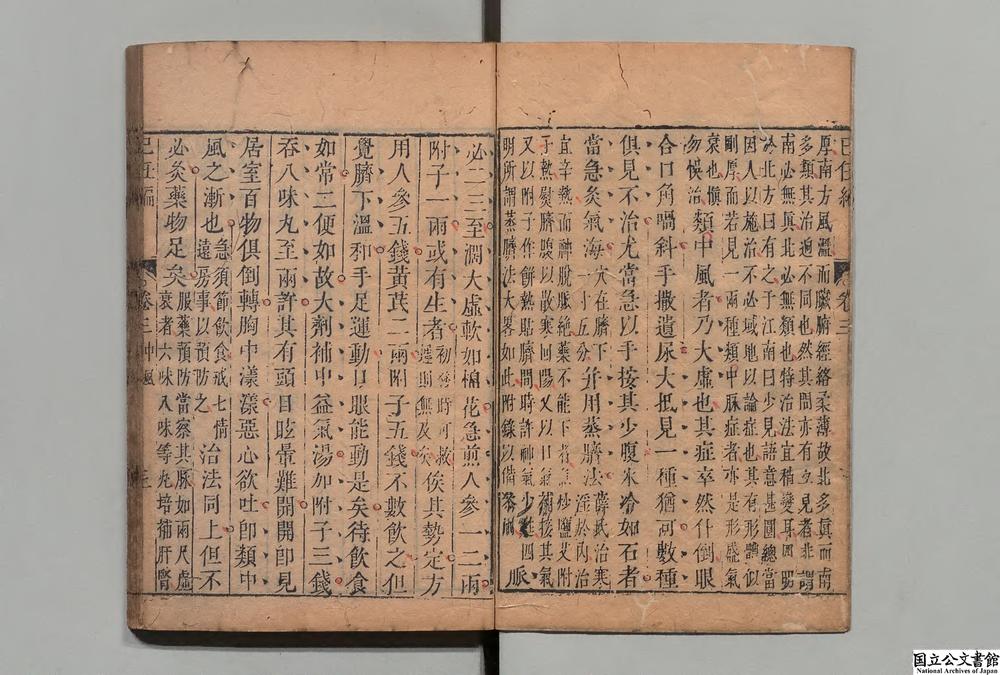 已任編
卷三
厚南方風溫而臟腑經絡柔薄故北多真而南
多類其治迥不同也然其間亦有互見者非謂
南必無真北必無類也特治法宜稍變耳固明
於北方曰有之于江南曰少見語意甚圓總當
因人以施治不必域地以論症也其有形體似
剛厚而若見一兩種類中脈症者亦是形盛氣
衰也慎
勿悞治
類中風者乃大虛也其症卒然什倒眼
合口角喎斜手撒遺尿大抵見一種猶可數種
俱見不治尤當急以手按其少腹果冷如石者
當急灸氣海
穴在臍下
一寸五分
并用蒸臍法
薛武治寒
淫於內治
宜辛熱而臍脫脈絕藥不能下者急炒鹽艾附
于熱熨臍腹以散寒回陽又以口氣補接其氣
又以附子作餅熱貼臍間時許神氣少醒四
明所謂蒸臍法大畧如此附錄以備叅用
脈
必二三至濶大虛軟如楊花急煎人參一二兩
附子一兩或有生者
初發時可救
遲則無及矣
俟其勢定方
用人參五錢黃芪二兩附子五錢不數飲之但
覺臍下溫和手足運動口眼能動是矣待飲食
如常二便如故大劑補中益氣湯加附子三錢
吞八味丸至兩許其有頭目眩暈難開開即見
居室百物俱倒轉胸中漾漾惡心欲吐即類中
風之漸也
急須節飲食戒七情
遠房事以預防之
治法同上但不
必灸藥物足矣
服藥預防當察其脈如兩尺虛
衰者六味八味等丸培補肝腎
已任編
卷三
中風
三
国立公文書館
National Archives of Japan